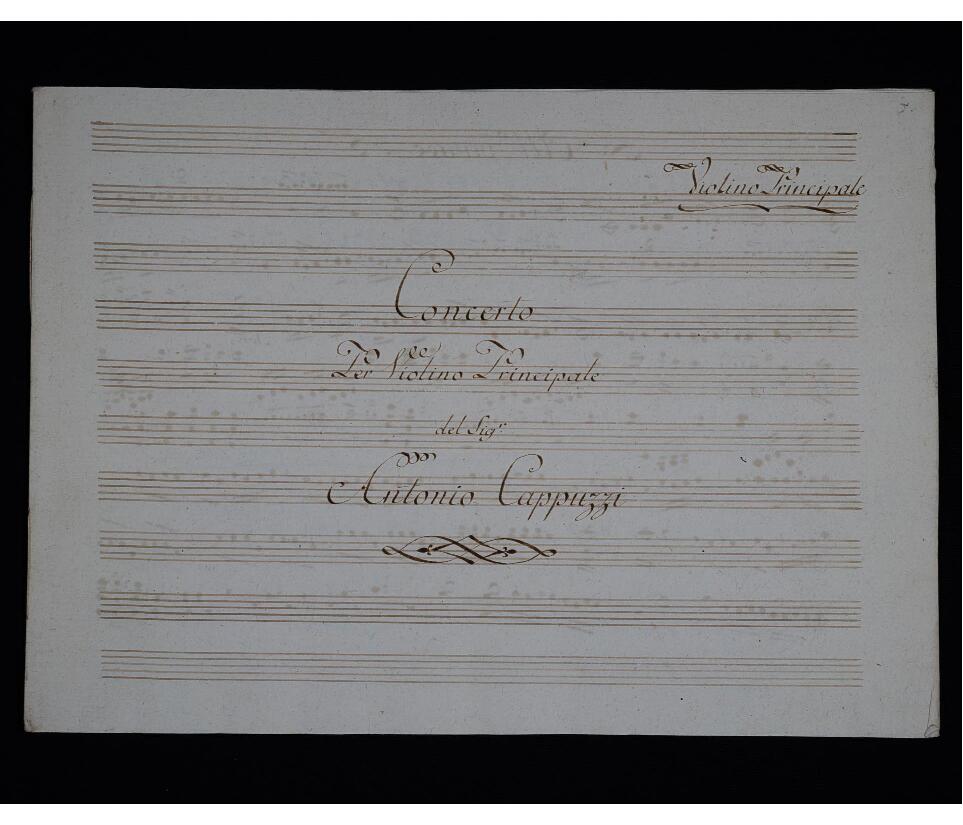 3.
Violino Principale
Concerto
Per Violino Principale
del Sig.r
Antonio Cappuzzi